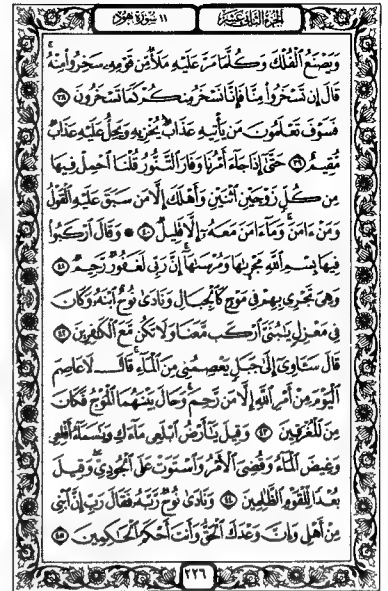 الجزء الثاني عشر
١١ سورة هود
وَيَصْنَعُ ٱلْفُلْكَ وَكُلَّمَا مَرَّ عَلَيْهِ مَلَأٌ مِّن قَوْمِهِۦ سَخِرُوا۟ مِنْهُ
قَالَ إِن تَسْخَرُوا۟ مِنَّا فَإِنَّا نَسْخَرُ مِنكُمْ كَمَا تَسْخَرُونَ ٣٨
فَسَوْفَ تَعْلَمُونَ مَن يَأْتِيهِ عَذَابٌ يُخْزِيهِ وَيَحِلُّ عَلَيْهِ عَذَابٌ
مُّقِيمٌ ٣٩ حَتَّىٰٓ إِذَا جَآءَ أَمْرُنَا وَفَارَ ٱلتَّنُّورُ قُلْنَا ٱحْمِلْ فِيهَا
مِن كُلٍّ زَوْجَيْنِ ٱثْنَيْنِ وَأَهْلَكَ إِلَّا مَن سَبَقَ عَلَيْهِ ٱلْقَوْلُ
وَمَنْ ءَامَنَ ۚ وَمَآ ءَامَنَ مَعَهُۥٓ إِلَّا قَلِيلٌ ٤٠ ۞ وَقَالَ ٱرْكَبُوا۟
فِيهَا بِسْمِ ٱللَّهِ مَجْر۪ىٰهَا وَمُرْسَىٰهَآ ۚ إِنَّ رَبِّى لَغَفُورٌ رَّحِيمٌ ٤١
وَهِىَ تَجْرِى بِهِمْ فِى مَوْجٍ كَٱلْجِبَالِ وَنَادَىٰ نُوحٌ ٱبْنَهُۥ وَكَانَ
فِى مَعْزِلٍ يَـٰبُنَىَّ ٱرْكَب مَّعَنَا وَلَا تَكُن مَّعَ ٱلْكَـٰفِرِينَ ٤٢
قَالَ سَـَٔاوِىٓ إِلَىٰ جَبَلٍ يَعْصِمُنِى مِنَ ٱلْمَآءِ ۚ قَالَ لَا عَاصِمَ
ٱلْيَوْمَ مِنْ أَمْرِ ٱللَّهِ إِلَّا مَن رَّحِمَ ۚ وَحَالَ بَيْنَهُمَا ٱلْمَوْجُ فَكَانَ
مِنَ ٱلْمُغْرَقِينَ ٤٣ وَقِيلَ يَـٰٓأَرْضُ ٱبْلَعِى مَآءَكِ وَيَـٰسَمَآءُ أَقْلِعِى
وَغِيضَ ٱلْمَآءُ وَقُضِىَ ٱلْأَمْرُ وَٱسْتَوَتْ عَلَى ٱلْجُودِىِّ ۖ وَقِيلَ
بُعْدًا لِّلْقَوْمِ ٱلظَّـٰلِمِينَ ٤٤ وَنَادَىٰ نُوحٌ رَّبَّهُۥ فَقَالَ رَبِّ إِنَّ ٱبْنِى
مِنْ أَهْلِى وَإِنَّ وَعْدَكَ ٱلْحَقُّ وَأَنتَ أَحْكَمُ ٱلْحَـٰكِمِينَ ٤٥
٢٢٦